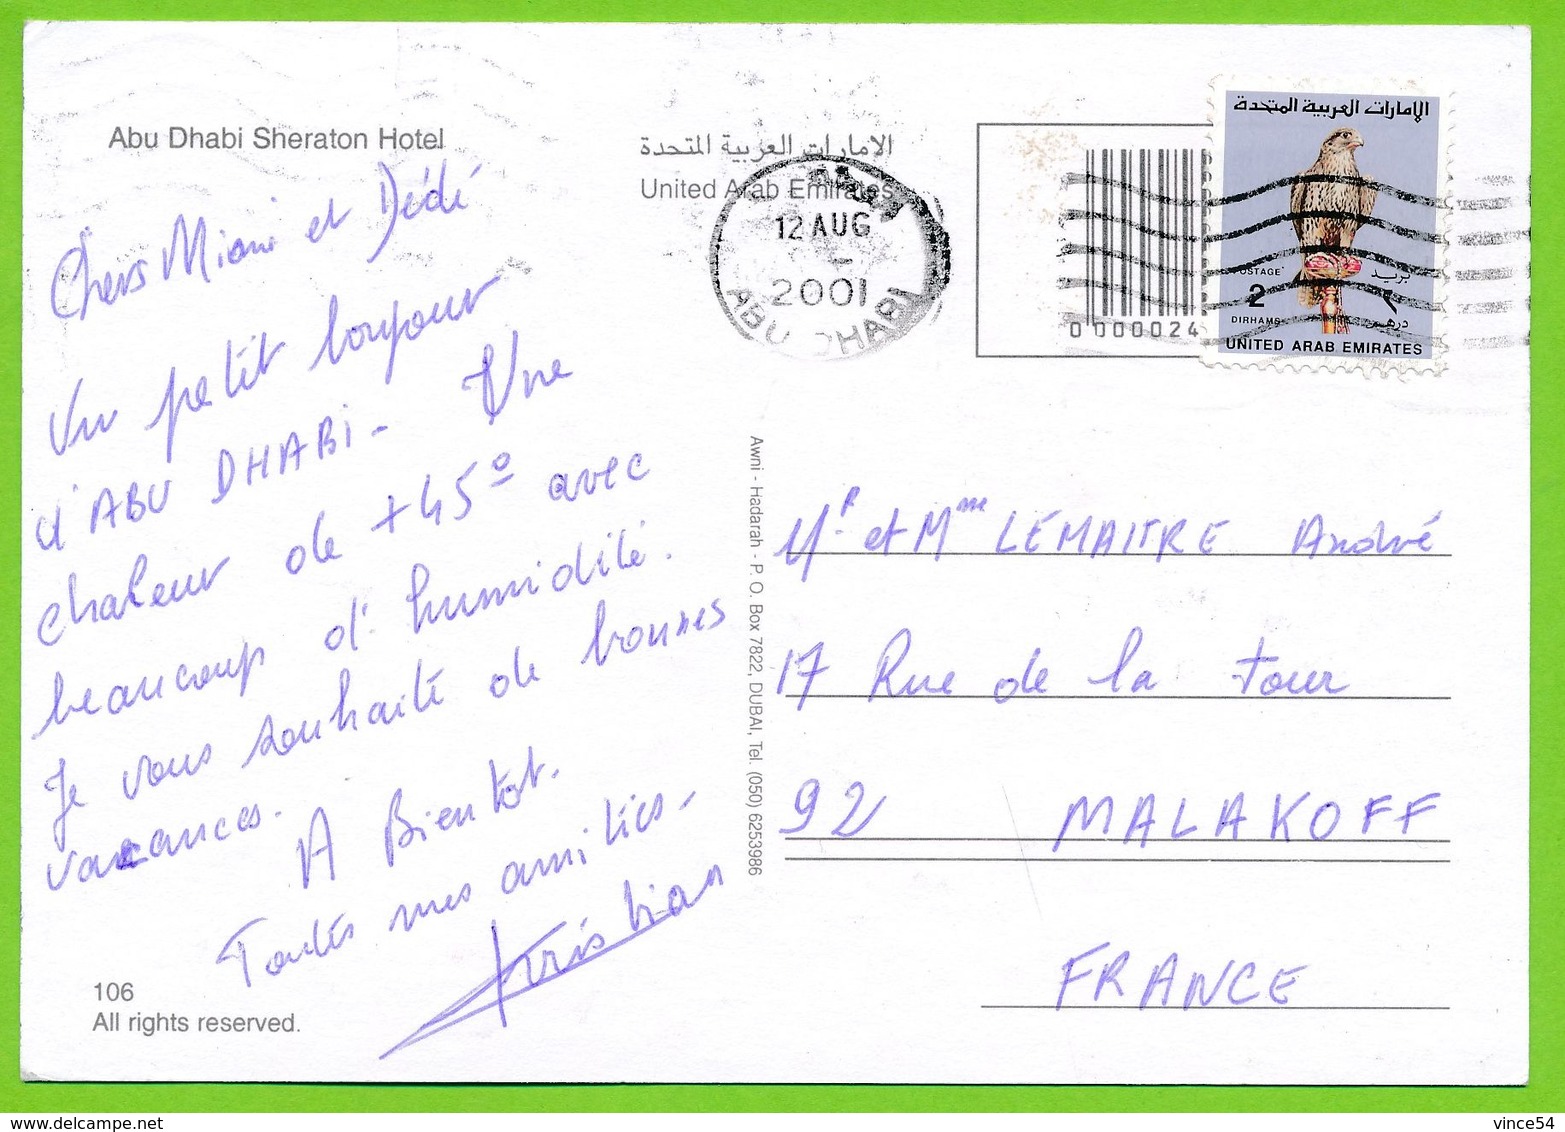 Abu Dhabi Sheraton Hotel
الامارات العربية المتحدة
United Arab Emirates
12 AUG
2001
ABU DHABI
0000024
الإمارات العربية المتحدة
POSTAGE بريد
2 ٢
DIRHAMS درهم
UNITED ARAB EMIRATES
Chers Miami et Dédé
Un petit bonjour
d'ABU DHABI - Une
chaleur de +45° avec
beaucoup d'humidité.
Je vous souhaite de bonnes
vacances.
A Bientot.
Toutes mes amitiés -
Kristian
106
All rights reserved.
Awni - Hadarah - P. O. Box 7822, DUBAI, Tel. (050) 6253986
Mr et Mme LEMAITRE André
17 Rue de la Tour
92 MALAKOFF
FRANCE
vince54